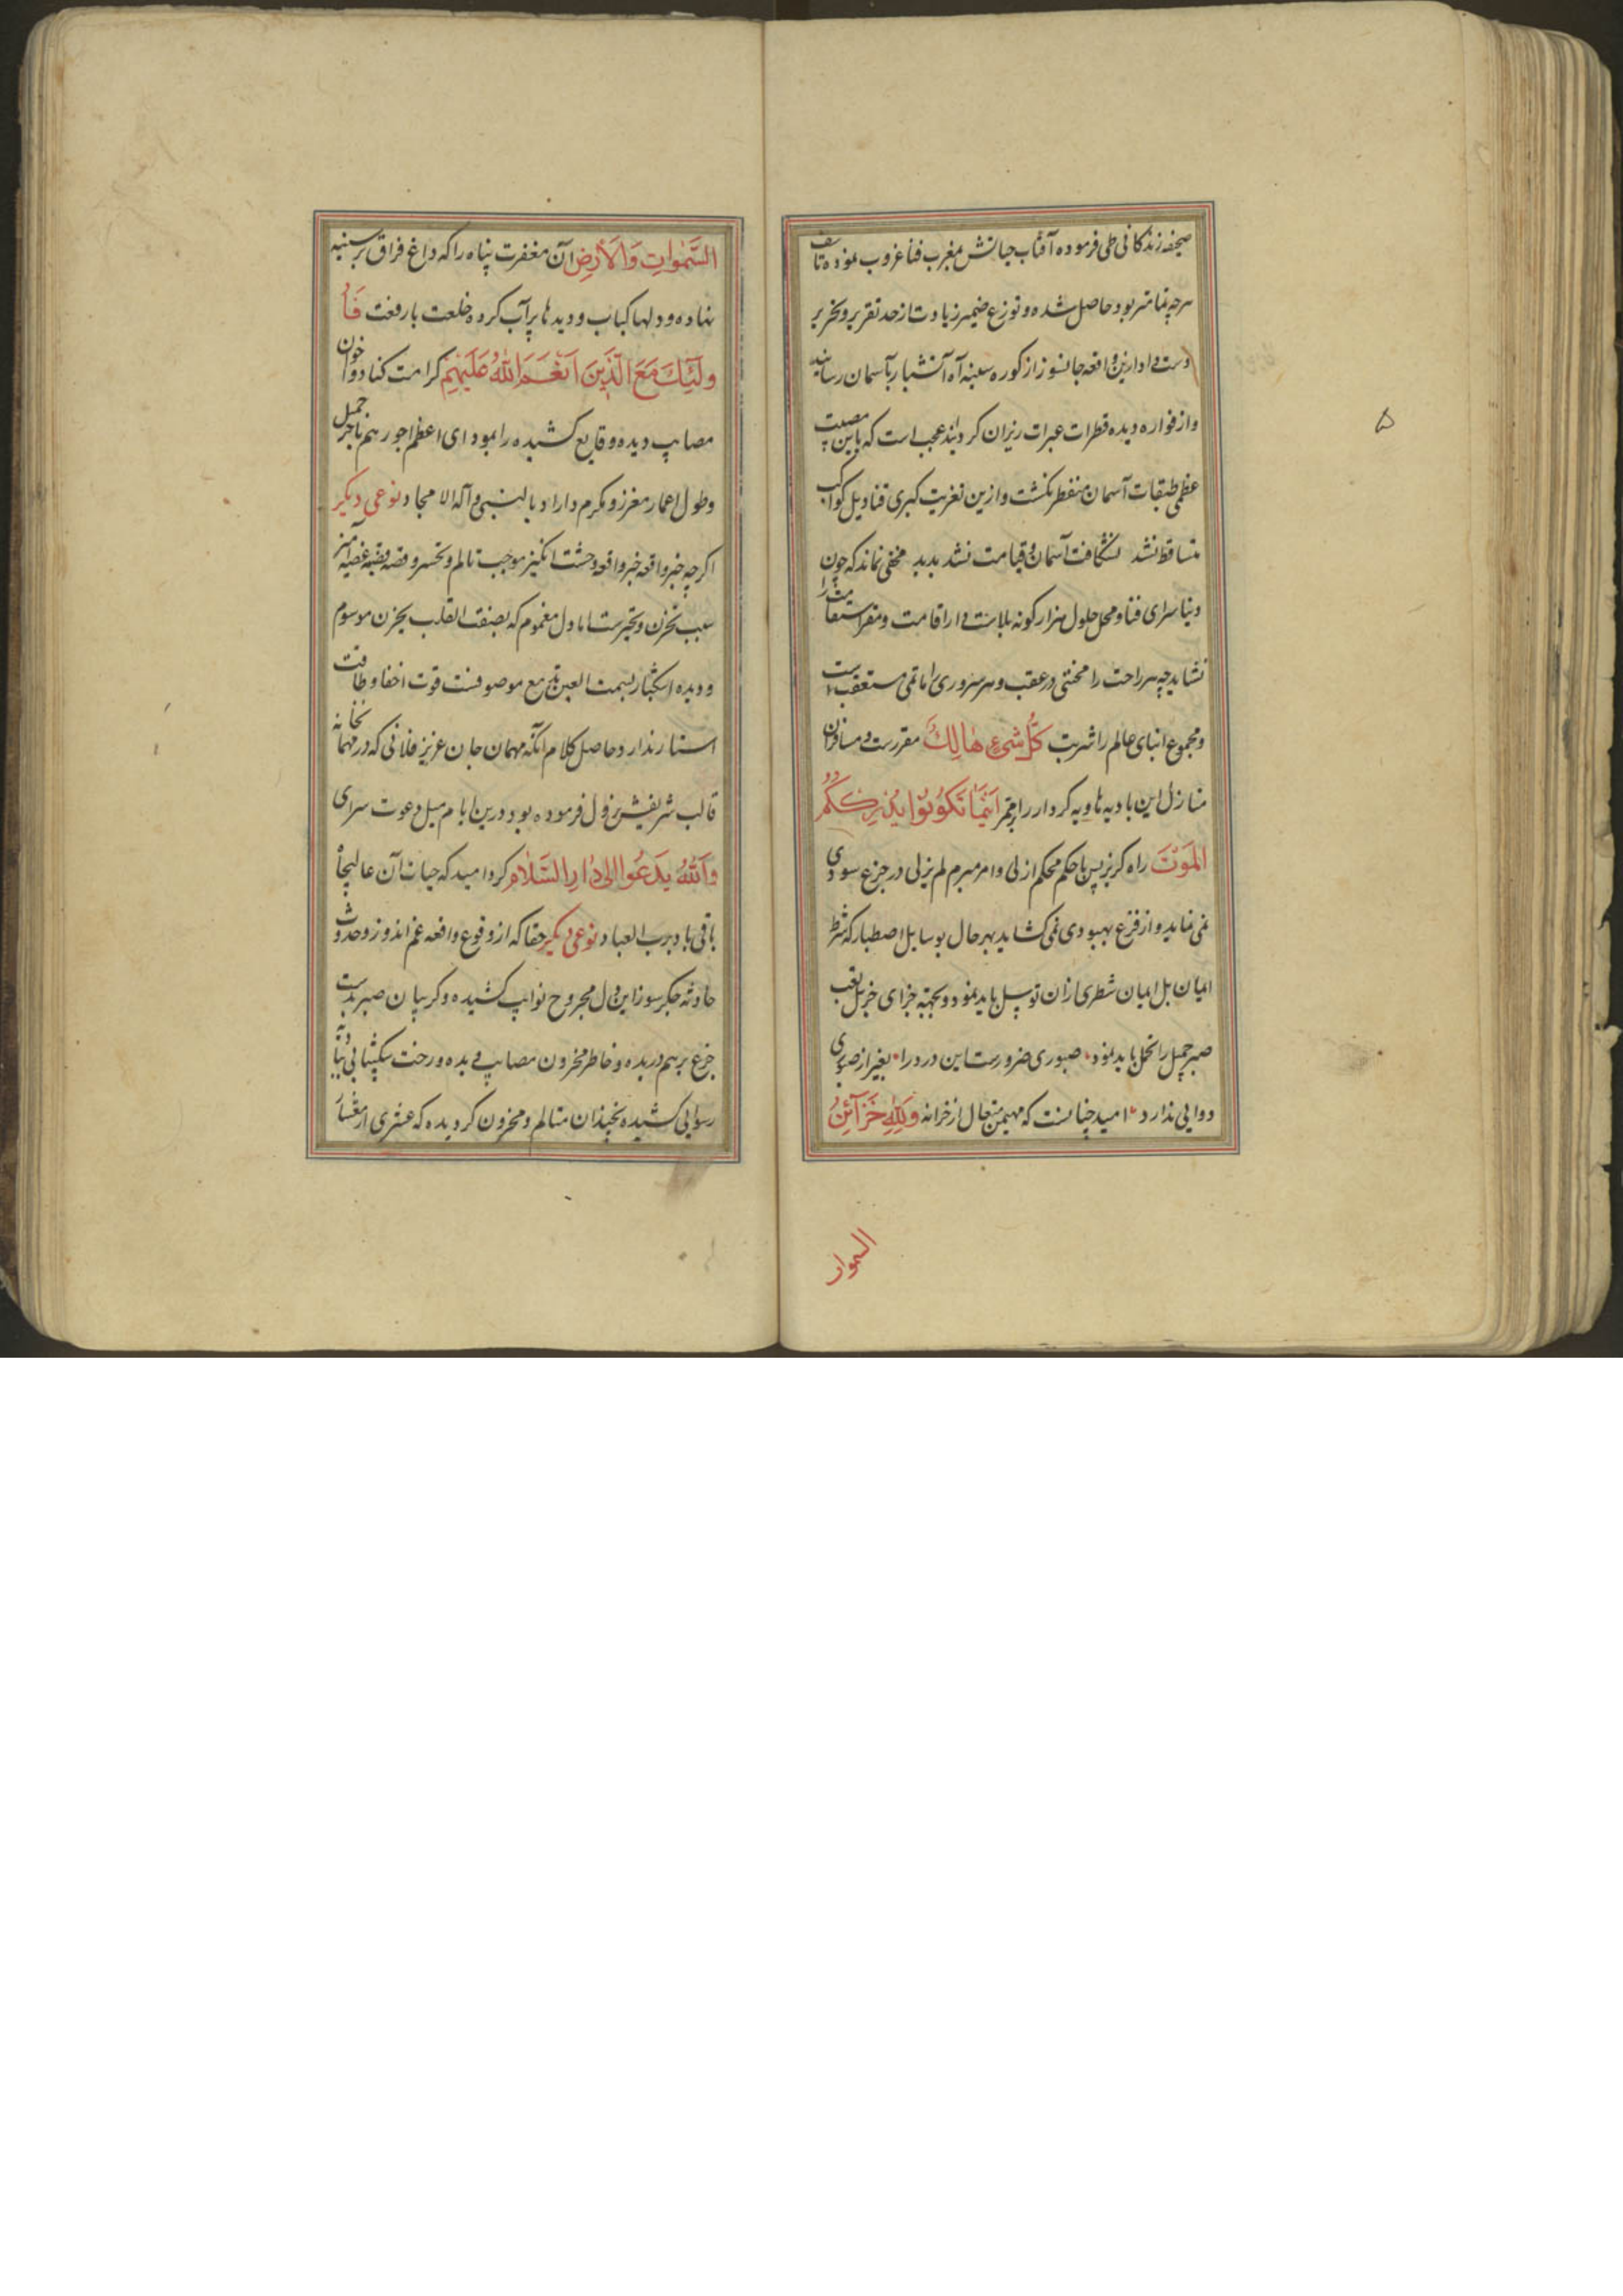 صحیفه زندکانی طی فرموده آفتاب حیاتش بمغرب فنا غروب نموده تاسف
هرچه تمامتر بود حاصل شده و توزع ضمیر زیادت از حد تقریر و تحریر
دست داد ازین واقعه جانسوز از کوره سینه آه آتشبار بآسمان رسانید
و از فواره دیده قطرات عبرات ریزان کردانید عجب است که باین مصیبت
عظمی طبقات آسمان منفطر نکشت و ازین تعزیت کبری قنادیل کواکب
متساقط نشد نشکافت آسمان و قیامت نشد پدید مخفی نماند که چون
دنیا سرای فنا و محل حلول هزار کونه بلاست دار اقامت و مقر استقامت را
نشاید چه هر راحت را محنتی در عقب و هر سروری را ماتمی مستعقب است
و مجموع ابنای عالم را شربت كُلُّ شَیءٍ هَالِكٌ مقررست و مسافران
منازل این بادیه هاویه کردار را مقر اَيْنَمَا تَكُونُوا يُدْرِكْكُمُ
المَوْتَ راه کریز پس با حکم محکم ازلی و امر مبرم لم یزلی در جزع سودی
نمی نماید و از فزع بهبودی نمی کشاید بهر حال بوسایل اصطبار که شرط
ایمان بل ایمان شطری ازان توسل باید نمود و بجهة جزای جزیل تعب
صبر جمیل را تحمل باید نمود صبوری ضرورست این درد را بغیر از صبوری
دوایی ندارد امید چنانست که مهیمن متعال از خزانه وَلِلّٰهِ خَزَآئِنُ
السموات
السَّمٰوَاتِ وَالْاَرْضِ آن مغفرت پناه را که داغ فراق بر سینه
نهاده و دلها کباب و دیدها پرآب کرده خلعت با رفعت فَاُ
ولٰٓئِكَ مَعَ الَّذِينَ اَنْعَمَ اللّٰهُ عَلَيْهِمْ کرامت کناد و اخوان
مصایب دیده وقایع کشیده را بمودای اعظم اجورهم باجر جمیل
و طول اعمار معزز و مکرم داراد بالنبی و آله الامجاد نوعی دیکر
اکرچه خبر واقعه وحشت انکیز موجب تالم و تحسر و قصه غصه آمیز
سبب تحزن و تحیرست اما دل مغموم که بصفت القلب یحزن موسوم
و دیده اشکبار بسمت العین تدمع موصوفست قوت اخفا و طاقت
استتار ندارد و حاصل کلام آنکه مهمان جان عزیز فلانی که در مهمانخانه
قالب شریفش نزول فرموده بود درین ایام میل دعوت سرای
وَاللّٰهُ يَدْعُوا اِلٰى دَارِ السَّلَامِ کرد امید که حیات آن عالیجاه
باقی باد برب العباد نوعی دیکر حقا که از وقوع واقعه غم اندوز و حدوث
حادثه جکرسوز این دل مجروح نوایب کشیده و کریبان صبر بدست
جزع برهم دریده و خاطر محزون مصایب دیده و رخت شکیبایی
رسوایی کشیده بچندان متالم و محزون کردیده که عشری از معشار
۵